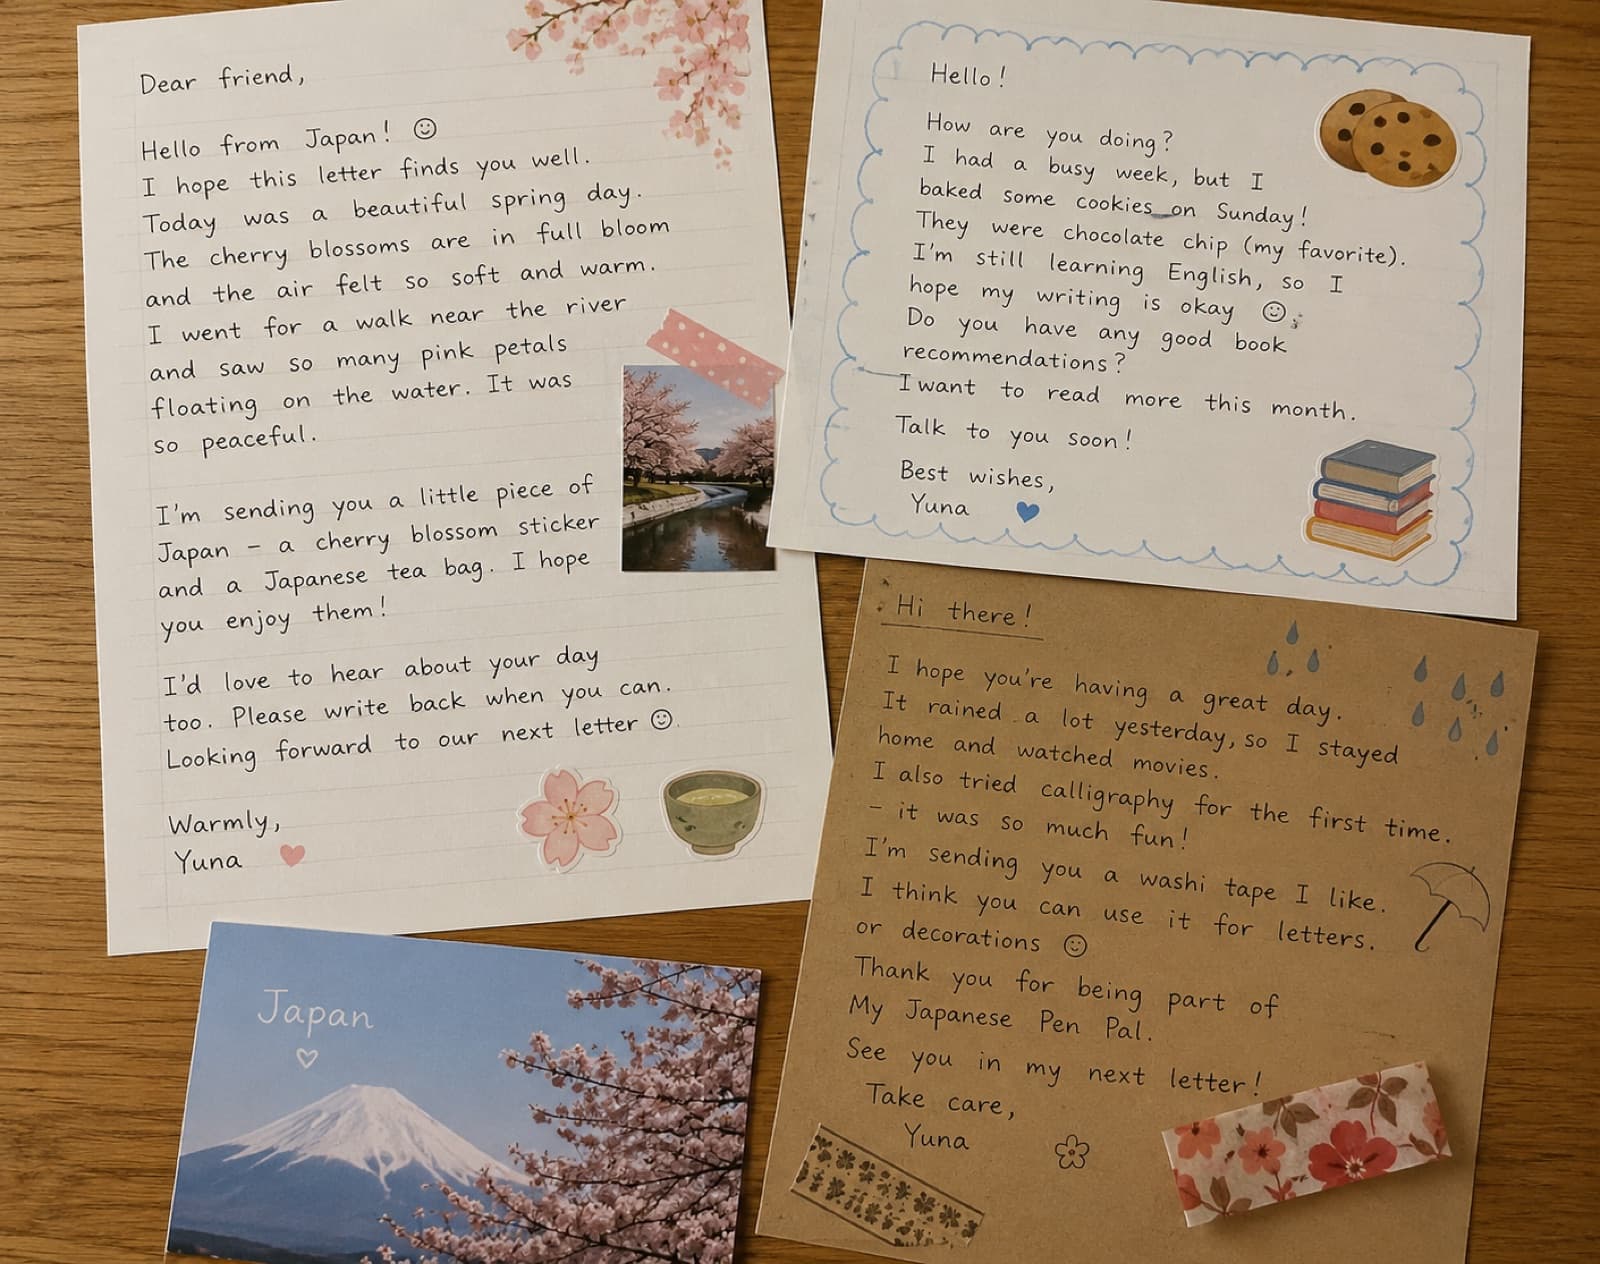 Dear friend,
Hello from Japan! ☺
I hope this letter finds you well.
Today was a beautiful spring day.
The cherry blossoms are in full bloom
and the air felt so soft and warm.
I went for a walk near the river
and saw so many pink petals
floating on the water. It was
so peaceful.
I'm sending you a little piece of
Japan – a cherry blossom sticker
and a Japanese tea bag. I hope
you enjoy them!
I'd love to hear about your day
too. Please write back when you can.
Looking forward to our next letter ☺
Warmly,
Yuna
Hello!
How are you doing?
I had a busy week, but I
baked some cookies on Sunday!
They were chocolate chip (my favorite).
I'm still learning English, so I
hope my writing is okay ☺
Do you have any good book
recommendations?
I want to read more this month.
Talk to you soon!
Best wishes,
Yuna
Hi there!
I hope you're having a great day.
It rained a lot yesterday, so I stayed
home and watched movies.
I also tried calligraphy for the first time.
– it was so much fun!
I'm sending you a washi tape I like.
I think you can use it for letters.
or decorations ☺
Thank you for being part of
My Japanese Pen Pal.
See you in my next letter!
Take care,
Yuna
Japan